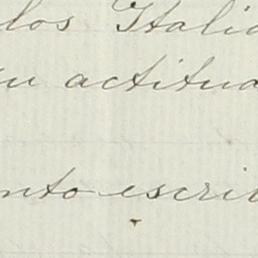 los Italia
su actitud
nto escri